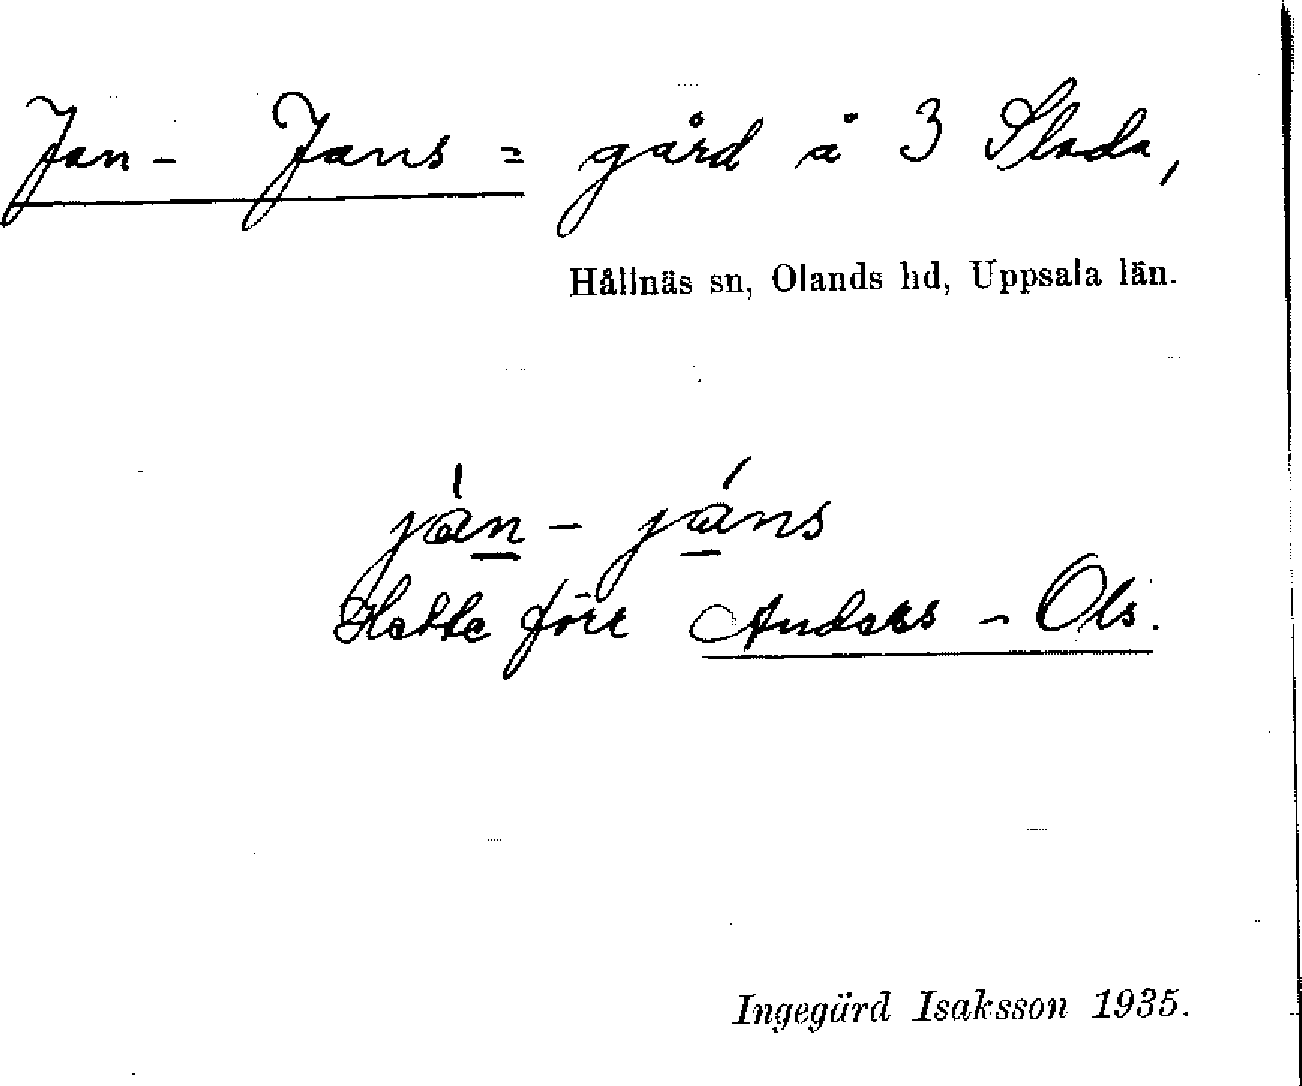 Jan - Jans = gård å 3 Slada,
Hållnäs sn, Olands hd, Uppsala län.
jàn - jáns
Hette förr Anders - Ols.
Ingegärd Isaksson 1935.